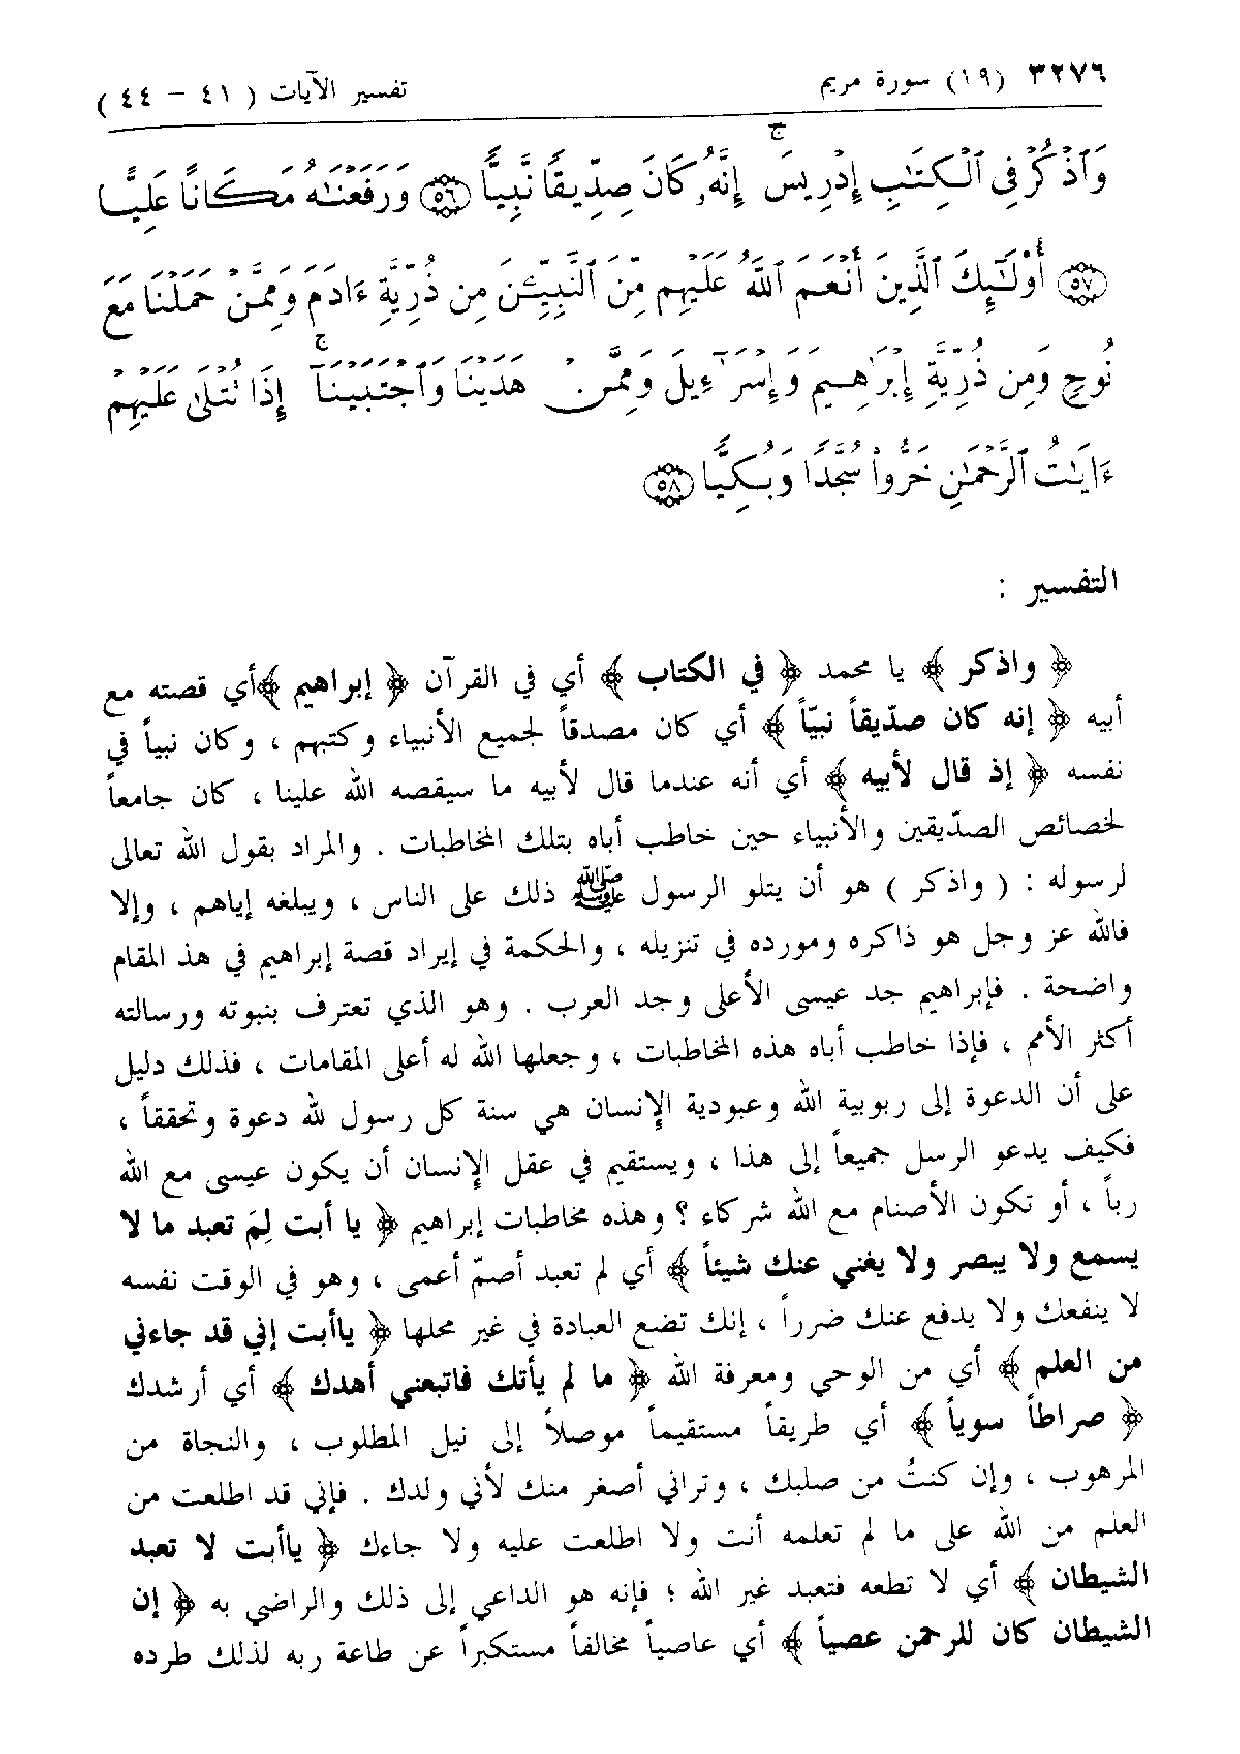 ٣٢٧٦ (١٩) سورة مريم تفسير الآيات ( ٤١ - ٤٤ )
وَٱذْكُرْ فِى ٱلْكِتَٰبِ إِدْرِيسَ إِنَّهُۥ كَانَ صِدِّيقًا نَّبِيًّا ۝٥٦ وَرَفَعْنَٰهُ مَكَانًا عَلِيًّا
۝٥٧ أُو۟لَٰٓئِكَ ٱلَّذِينَ أَنْعَمَ ٱللَّهُ عَلَيْهِم مِّنَ ٱلنَّبِيِّـۧنَ مِن ذُرِّيَّةِ ءَادَمَ وَمِمَّنْ حَمَلْنَا مَعَ
نُوحٍ وَمِن ذُرِّيَّةِ إِبْرَٰهِيمَ وَإِسْرَٰٓءِيلَ وَمِمَّنْ هَدَيْنَا وَٱجْتَبَيْنَآ ۚ إِذَا تُتْلَىٰ عَلَيْهِمْ
ءَايَٰتُ ٱلرَّحْمَٰنِ خَرُّوا۟ سُجَّدًا وَبُكِيًّا ۝٥٨
التفسير :
﴿ واذكر ﴾ يا محمد ﴿ في الكتاب ﴾ أي في القرآن ﴿ إبراهيم ﴾أي قصته مع
أبيه ﴿ إنه كان صدّيقاً نبيّاً ﴾ أي كان مصدقاً لجميع الأنبياء وكتبهم ، وكان نبياً في
نفسه ﴿ إذ قال لأبيه ﴾ أي أنه عندما قال لأبيه ما سيقصه الله علينا ، كان جامعاً
لخصائص الصدّيقين والأنبياء حين خاطب أباه بتلك المخاطبات . والمراد بقول الله تعالى
لرسوله : ( واذكر ) هو أن يتلو الرسول ﷺ ذلك على الناس ، ويبلغه إياهم ، وإلا
فالله عز وجل هو ذاكره ومورده في تنزيله ، والحكمة في إيراد قصة إبراهيم في هذ المقام
واضحة . فإبراهيم جد عيسى الأعلى وجد العرب . وهو الذي تعترف بنبوته ورسالته
أكثر الأمم ، فإذا خاطب أباه هذه المخاطبات ، وجعلها الله له أعلى المقامات ، فذلك دليل
على أن الدعوة إلى ربوبية الله وعبودية الإنسان هي سنة كل رسول لله دعوة وتحققاً ،
فكيف يدعو الرسل جميعاً إلى هذا ، ويستقيم في عقل الإنسان أن يكون عيسى مع الله
رباً ، أو تكون الأصنام مع الله شركاء ؟ وهذه مخاطبات إبراهيم ﴿ يا أبت لِمَ تعبد ما لا
يسمع ولا يبصر ولا يغني عنك شيئاً ﴾ أي لم تعبد أصمّ أعمى ، وهو في الوقت نفسه
لا ينفعك ولا يدفع عنك ضرراً ، إنك تضع العبادة في غير محلها ﴿ ياأبت إني قد جاءني
من العلم ﴾ أي من الوحي ومعرفة الله ﴿ ما لم يأتك فاتبعني أهدك ﴾ أي أرشدك
﴿ صراطاً سوياً ﴾ أي طريقاً مستقيماً موصلاً إلى نيل المطلوب ، والنجاة من
المرهوب ، وإن كنتُ من صلبك ، وتراني أصغر منك لأني ولدك . فإني قد اطلعت من
العلم من الله على ما لم تعلمه أنت ولا اطلعت عليه ولا جاءك ﴿ ياأبت لا تعبد
الشيطان ﴾ أي لا تطعه فتعبد غير الله ؛ فإنه هو الداعي إلى ذلك والراضي به ﴿ إن
الشيطان كان للرحمن عصياً ﴾ أي عاصياً مخالفاً مستكبراً عن طاعة ربه لذلك طرده